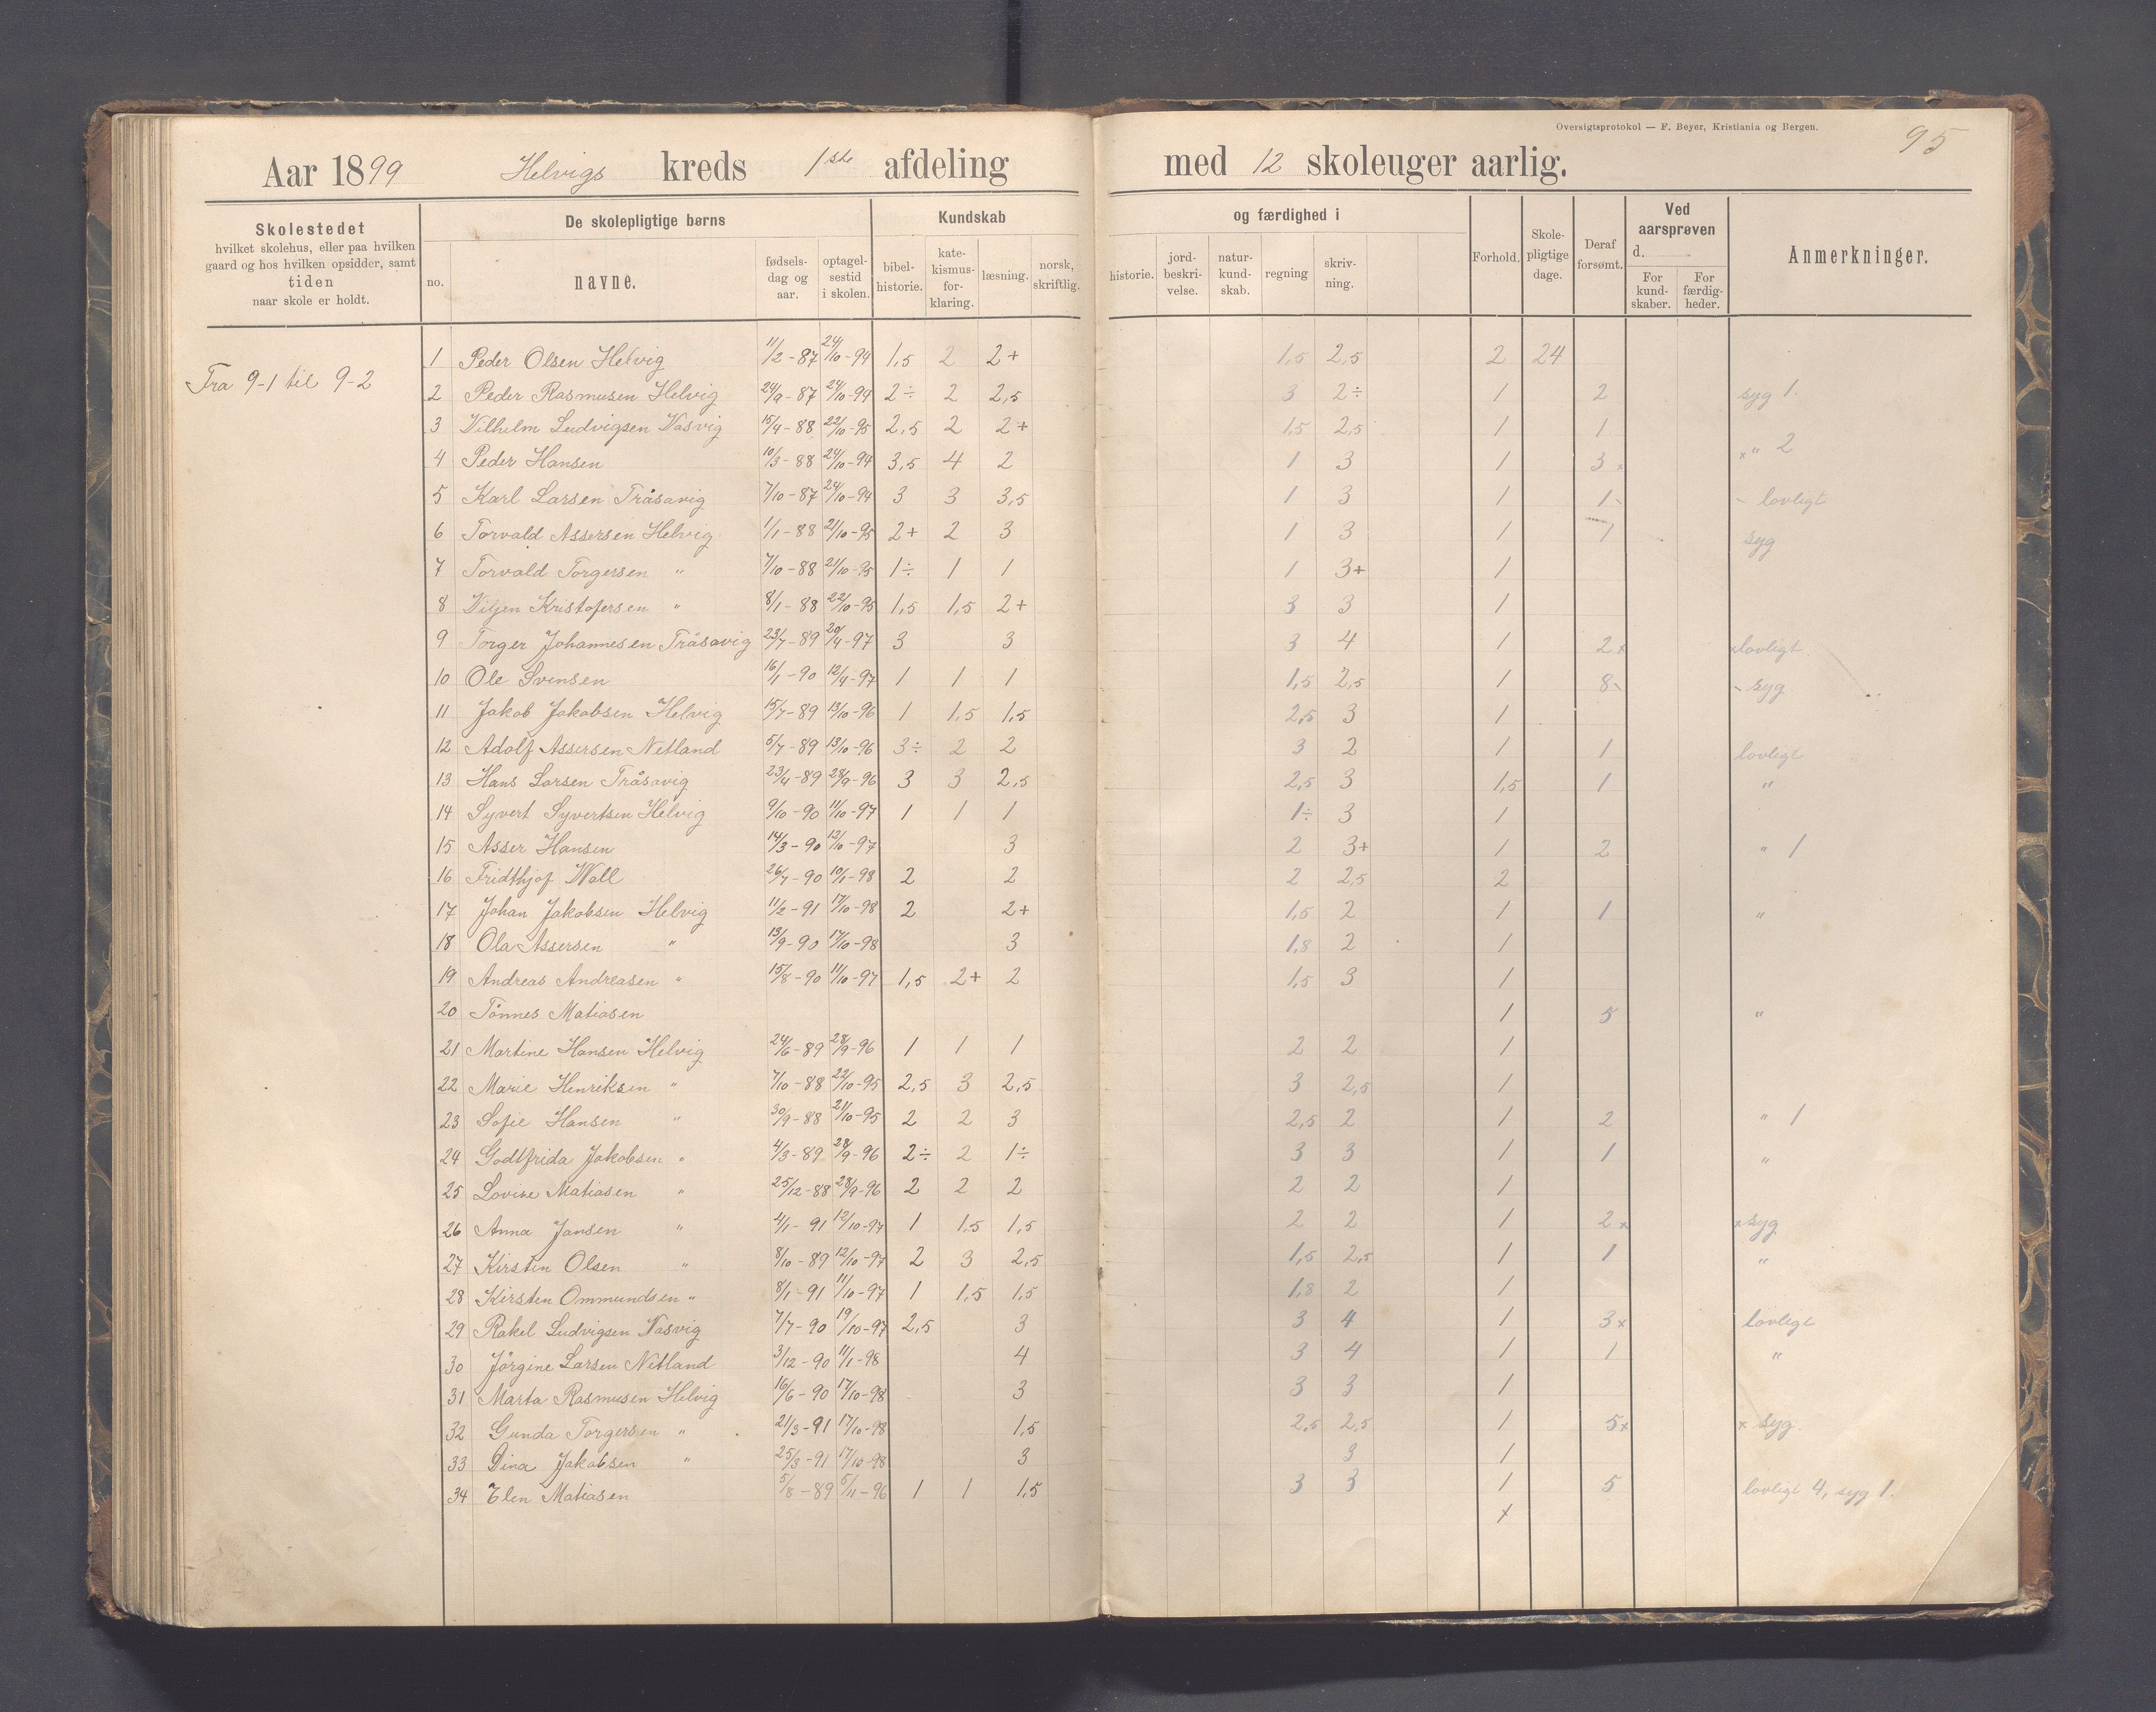 Oversigtsprotokol — F. Beyer, Kristiania og Bergen.
95
Aar 1899 Helvigs kreds 1ste afdeling med 12 skoleuger aarlig.
Skolestedet hvilket skolehus, eller paa hvilken gaard og hos hvilken opsidder, samt tiden naar skole er holdt.
De skolepligtige børns
no. navne. fødsels-dag og aar. optagel-sestid i skolen.
Kundskab og færdighed i
bibel-historie. kate-kismus-for-klaring. læsning. norsk, skriftlig. historie. jord-beskri-velse. natur-kund-skab. regning skriv-ning.
Forhold. Skole-pligtige dage. Deraf forsømt.
Ved aarsprøven d. For kund-skaber. For færdig-heder.
Anmerkninger.
Fra 9-1 til 9-2
1 Peder Olsen Helvig 11/2-87 24/10-94 1,5 2 2+ 1,5 2,5 2 24
2 Peder Rasmusen Helvig 24/9-87 24/10-94 2÷ 2 2,5 3 2÷ 1 2 syg 1.
3 Vilhelm Ludvigsen Vasvig 15/4-88 22/10-95 2,5 2 2+ 1,5 2,5 1 1
4 Peder Hansen 10/3-88 24/10-94 3,5 4 2 1 3 1 3x x " 2
5 Karl Larsen Tråsavig 7/10-87 24/10-94 3 3 3,5 1 3 1 1- - lovligt
6 Torvald Assersen Helvig 1/1-88 21/10-95 2+ 2 3 1 3 1 1 syg
7 Torvald Torgersen " 7/10-88 21/10-95 1÷ 1 1 1 3+ 1
8 Viljen Kristofersen " 8/1-88 22/10-95 1,5 1,5 2+ 3 3 1
9 Torger Johannesen Tråsavig 23/7-89 20/4-97 3 3 3 4 1 2x xlovligt.
10 Ole Svensen 16/1-90 12/4-97 1 1 1 1,5 2,5 1 8- - syg
11 Jakob Jakobsen Helvig 15/7-89 13/10-96 1 1,5 1,5 2,5 3 1
12 Adolf Assersen Netland 5/7-89 13/10-96 3÷ 2 2 3 2 1 1 lovligt
13 Hans Larsen Tråsavig 23/4-89 28/9-96 3 3 2,5 2,5 3 1,5 1 "
14 Syvert Syvertsen Helvig 9/10-90 11/10-97 1 1 1 1÷ 3 1
15 Asser Hansen 14/3-90 12/10-97 3 2 3+ 1 2 " 1
16 Fridthjof Wall 26/7-90 10/1-98 2 2 2 2,5 2
17 Johan Jakobsen Helvig 11/2-91 17/10-98 2 2+ 1,5 2 1 1 "
18 Ola Assersen " 13/9-90 17/10-98 3 1,8 2 1
19 Andreas Andreasen " 15/8-90 11/10-97 1,5 2+ 2 1,5 3 1
20 Tönnes Matiasen 1 5 "
21 Martine Hansen Helvig 24/6-89 28/9-96 1 1 1 2 2 1
22 Marie Henriksen " 7/10-88 22/10-95 2,5 3 2,5 3 2,5 1
23 Sofie Hansen " 30/9-88 21/10-95 2 2 3 2,5 2 1 2 " 1
24 Godtfrida Jakobsen " 4/3-89 28/9-96 2÷ 2 1÷ 3 3 1 1 "
25 Lovise Matiasen " 25/12-88 28/9-96 2 2 2 2 2 1
26 Anna Jansen " 4/1-91 12/10-97 1 1,5 1,5 2 2 1 2x xsyg
27 Kirsten Olsen " 8/10-89 12/10-97 2 3 2,5 1,5 2,5 1 1 "
28 Kirsten Ommundsen " 8/1-91 11/10-97 1 1,5 1,5 1,8 2 1
29 Rakel Ludvigsen Vasvig 7/7-90 19/10-97 2,5 3 3 4 1 3x lovligt
30 Jörgine Larsen Netland 3/12-90 11/1-98 4 3 4 1 1 "
31 Marta Rasmusen Helvig 16/6-90 17/10-98 3 3 3 1
32 Gunda Torgersen " 21/3-91 17/10-98 1,5 2,5 2,5 1 5x x syg.
33 Dina Jakobsen " 25/3-91 17/10-98 3 3 1
34 Elen Matiasen 5/8-89 5/11-96 1 1 1,5 3 3 1 5 lovligt 4, syg 1.
x